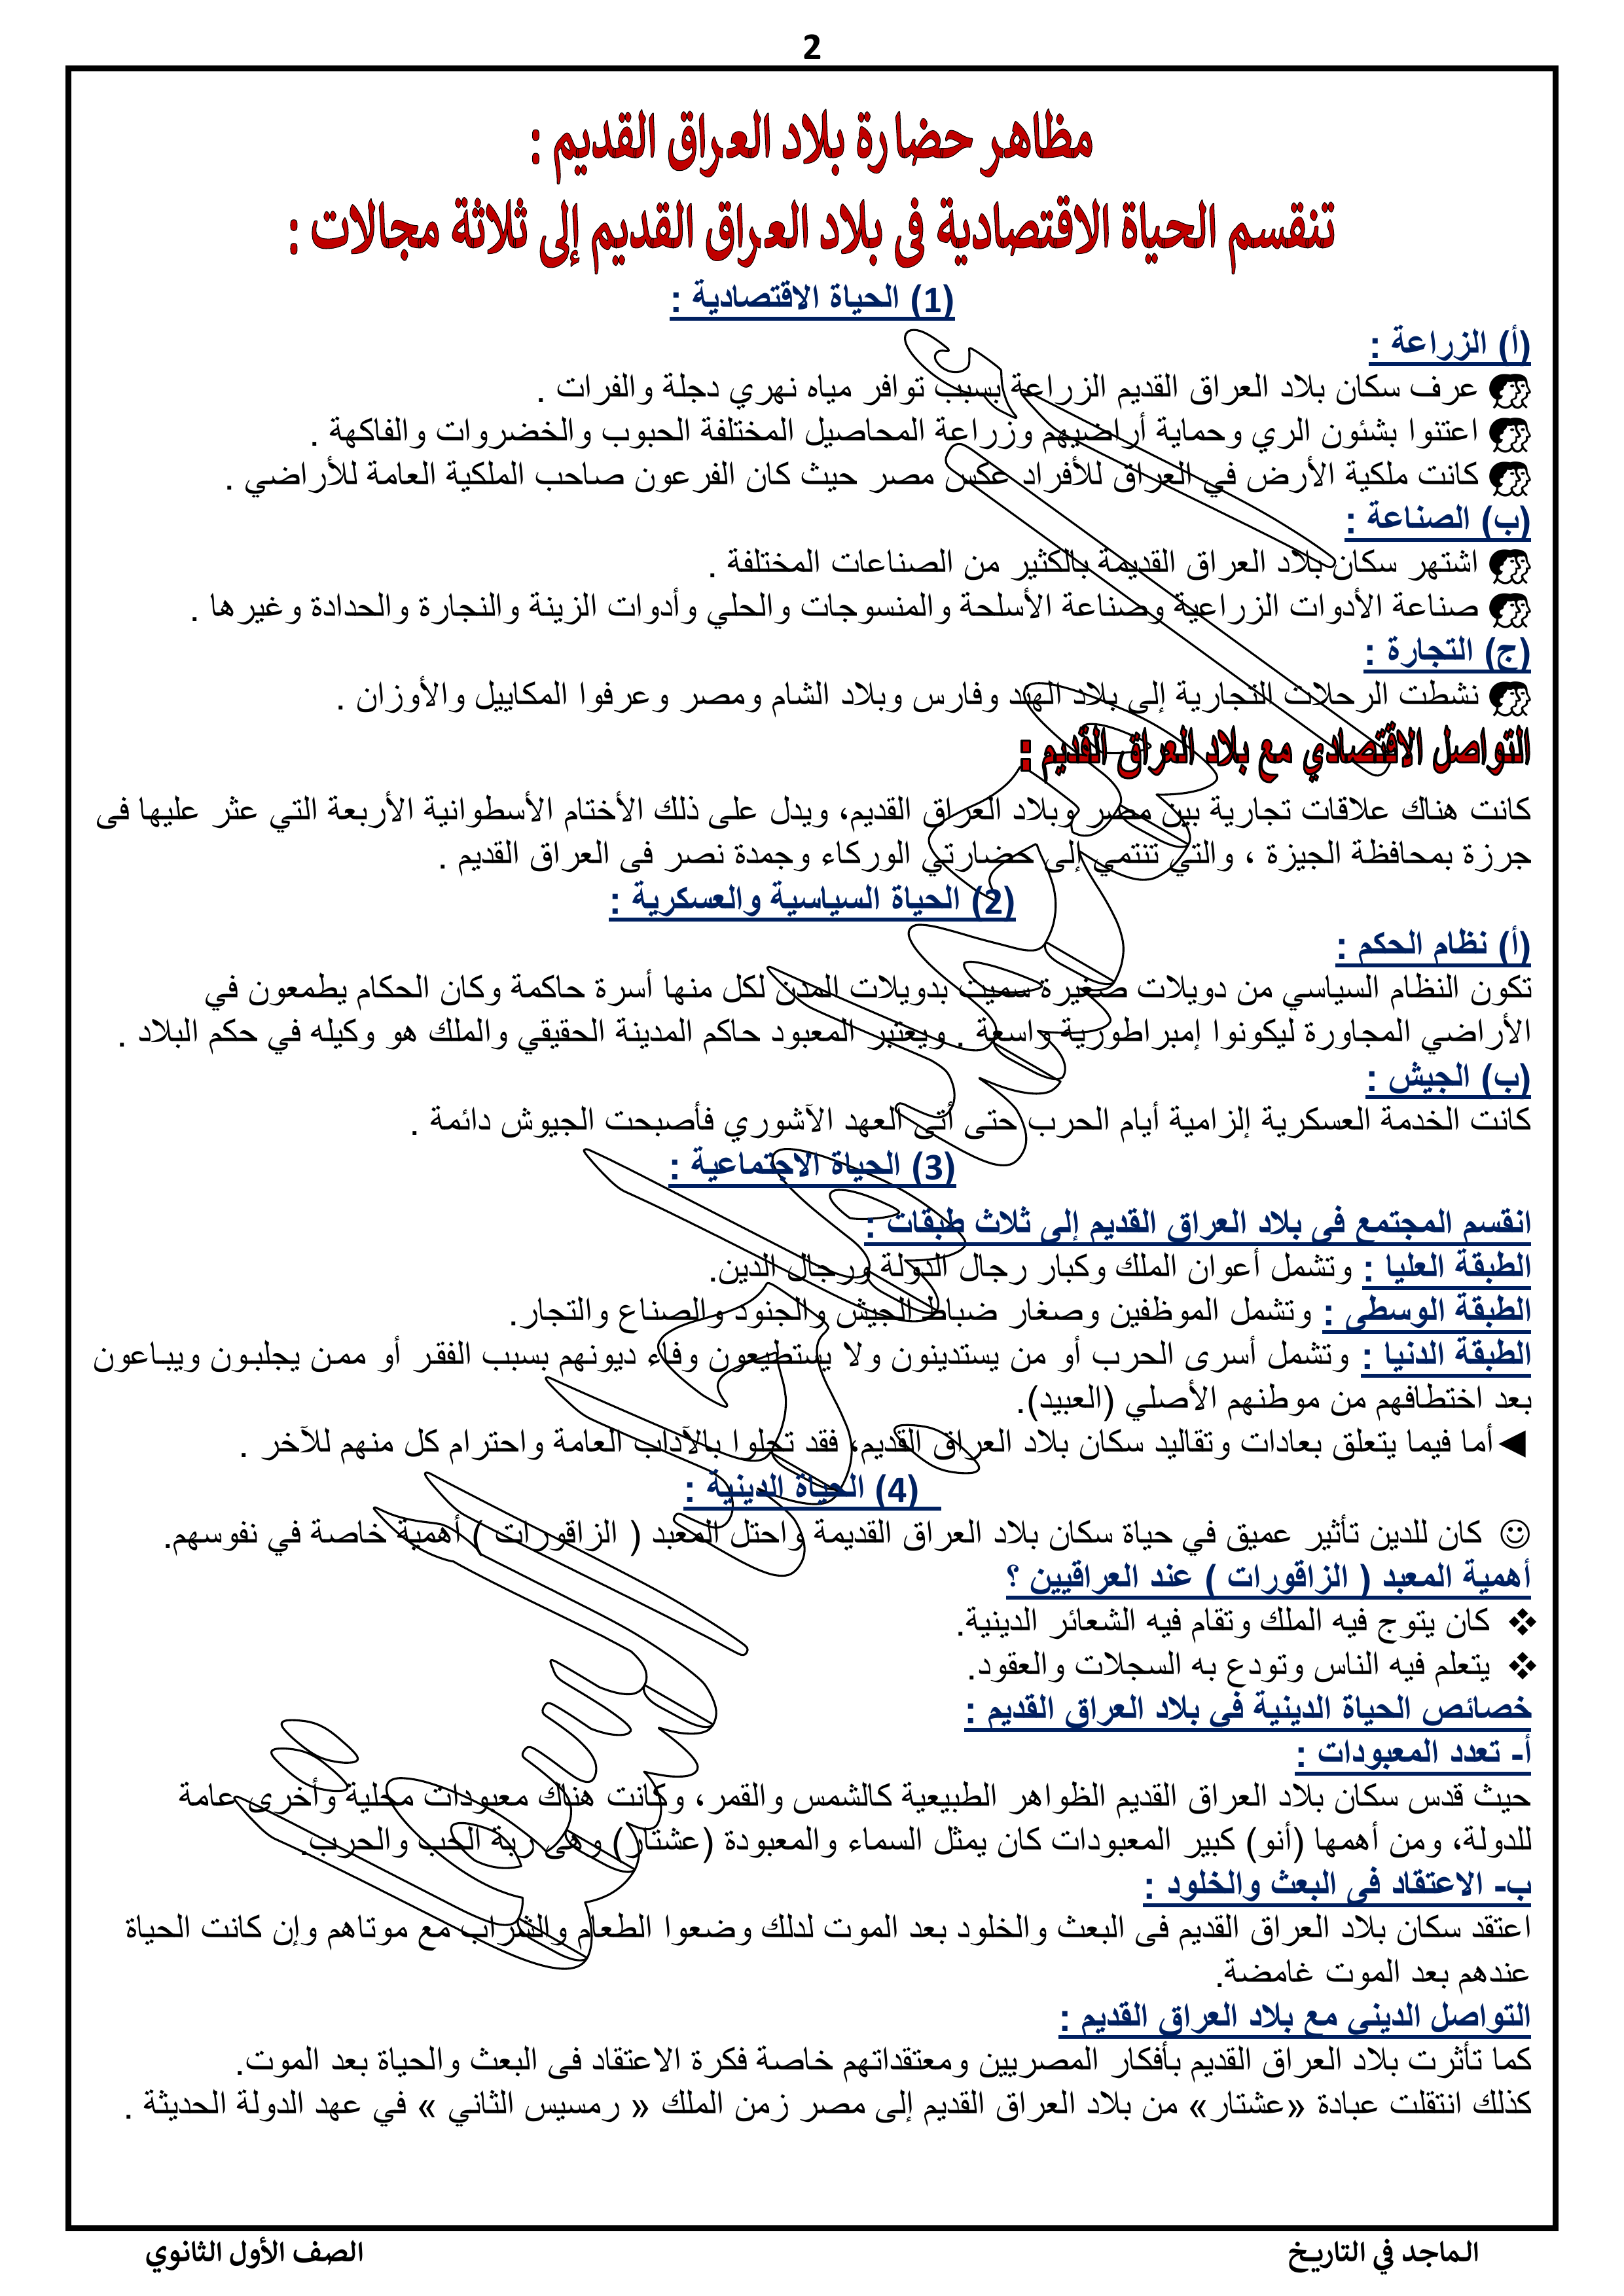 2
مظاهر حضارة بلاد العراق القديم :
تنقسم الحياة الاقتصادية فى بلاد العراق القديم إلى ثلاثة مجالات :
(1) الحياة الاقتصادية :
(أ) الزراعة :
عرف سكان بلاد العراق القديم الزراعة بسبب توافر مياه نهري دجلة والفرات .
اعتنوا بشئون الري وحماية أراضيهم وزراعة المحاصيل المختلفة الحبوب والخضروات والفاكهة .
كانت ملكية الأرض في العراق للأفراد عكس مصر حيث كان الفرعون صاحب الملكية العامة للأراضي .
(ب) الصناعة :
اشتهر سكان بلاد العراق القديمة بالكثير من الصناعات المختلفة .
صناعة الأدوات الزراعية وصناعة الأسلحة والمنسوجات والحلي وأدوات الزينة والنجارة والحدادة وغيرها .
(ج) التجارة :
نشطت الرحلات التجارية إلى بلاد الهند وفارس وبلاد الشام ومصر وعرفوا المكاييل والأوزان .
التواصل الاقتصادي مع بلاد العراق القديم :
كانت هناك علاقات تجارية بين مصر وبلاد العراق القديم، ويدل على ذلك الأختام الأسطوانية الأربعة التي عثر عليها فى
جرزة بمحافظة الجيزة ، والتي تنتمي إلى حضارتي الوركاء وجمدة نصر فى العراق القديم .
(2) الحياة السياسية والعسكرية :
(أ) نظام الحكم :
تكون النظام السياسي من دويلات صغيرة سميت بدويلات المدن لكل منها أسرة حاكمة وكان الحكام يطمعون في
الأراضي المجاورة ليكونوا إمبراطورية واسعة . ويعتبر المعبود حاكم المدينة الحقيقي والملك هو وكيله في حكم البلاد .
(ب) الجيش :
كانت الخدمة العسكرية إلزامية أيام الحرب حتى أتى العهد الآشوري فأصبحت الجيوش دائمة .
(3) الحياة الاجتماعية :
انقسم المجتمع فى بلاد العراق القديم إلى ثلاث طبقات :
الطبقة العليا : وتشمل أعوان الملك وكبار رجال الدولة ورجال الدين.
الطبقة الوسطى : وتشمل الموظفين وصغار ضباط الجيش والجنود والصناع والتجار.
الطبقة الدنيا : وتشمل أسرى الحرب أو من يستدينون ولا يستطيعون وفاء ديونهم بسبب الفقر أو ممن يجلبون ويباعون
بعد اختطافهم من موطنهم الأصلي (العبيد).
◄أما فيما يتعلق بعادات وتقاليد سكان بلاد العراق القديم، فقد تحلوا بالآداب العامة واحترام كل منهم للآخر .
(4) الحياة الدينية :
☺ كان للدين تأثير عميق في حياة سكان بلاد العراق القديمة واحتل المعبد ( الزاقورات ) أهمية خاصة في نفوسهم.
أهمية المعبد ( الزاقورات ) عند العراقيين ؟
❖ كان يتوج فيه الملك وتقام فيه الشعائر الدينية.
❖ يتعلم فيه الناس وتودع به السجلات والعقود.
خصائص الحياة الدينية فى بلاد العراق القديم :
أ- تعدد المعبودات :
حيث قدس سكان بلاد العراق القديم الظواهر الطبيعية كالشمس والقمر، وكانت هناك معبودات محلية وأخرى عامة
للدولة، ومن أهمها (أنو) كبير المعبودات كان يمثل السماء والمعبودة (عشتار) وهى ربة الحب والحرب.
ب- الاعتقاد فى البعث والخلود :
اعتقد سكان بلاد العراق القديم فى البعث والخلود بعد الموت لدلك وضعوا الطعام والشراب مع موتاهم وإن كانت الحياة
عندهم بعد الموت غامضة.
التواصل الدينى مع بلاد العراق القديم :
كما تأثرت بلاد العراق القديم بأفكار المصريين ومعتقداتهم خاصة فكرة الاعتقاد فى البعث والحياة بعد الموت.
كذلك انتقلت عبادة «عشتار» من بلاد العراق القديم إلى مصر زمن الملك « رمسيس الثاني » في عهد الدولة الحديثة .
الماجد في التاريخ
الصف الأول الثانوي